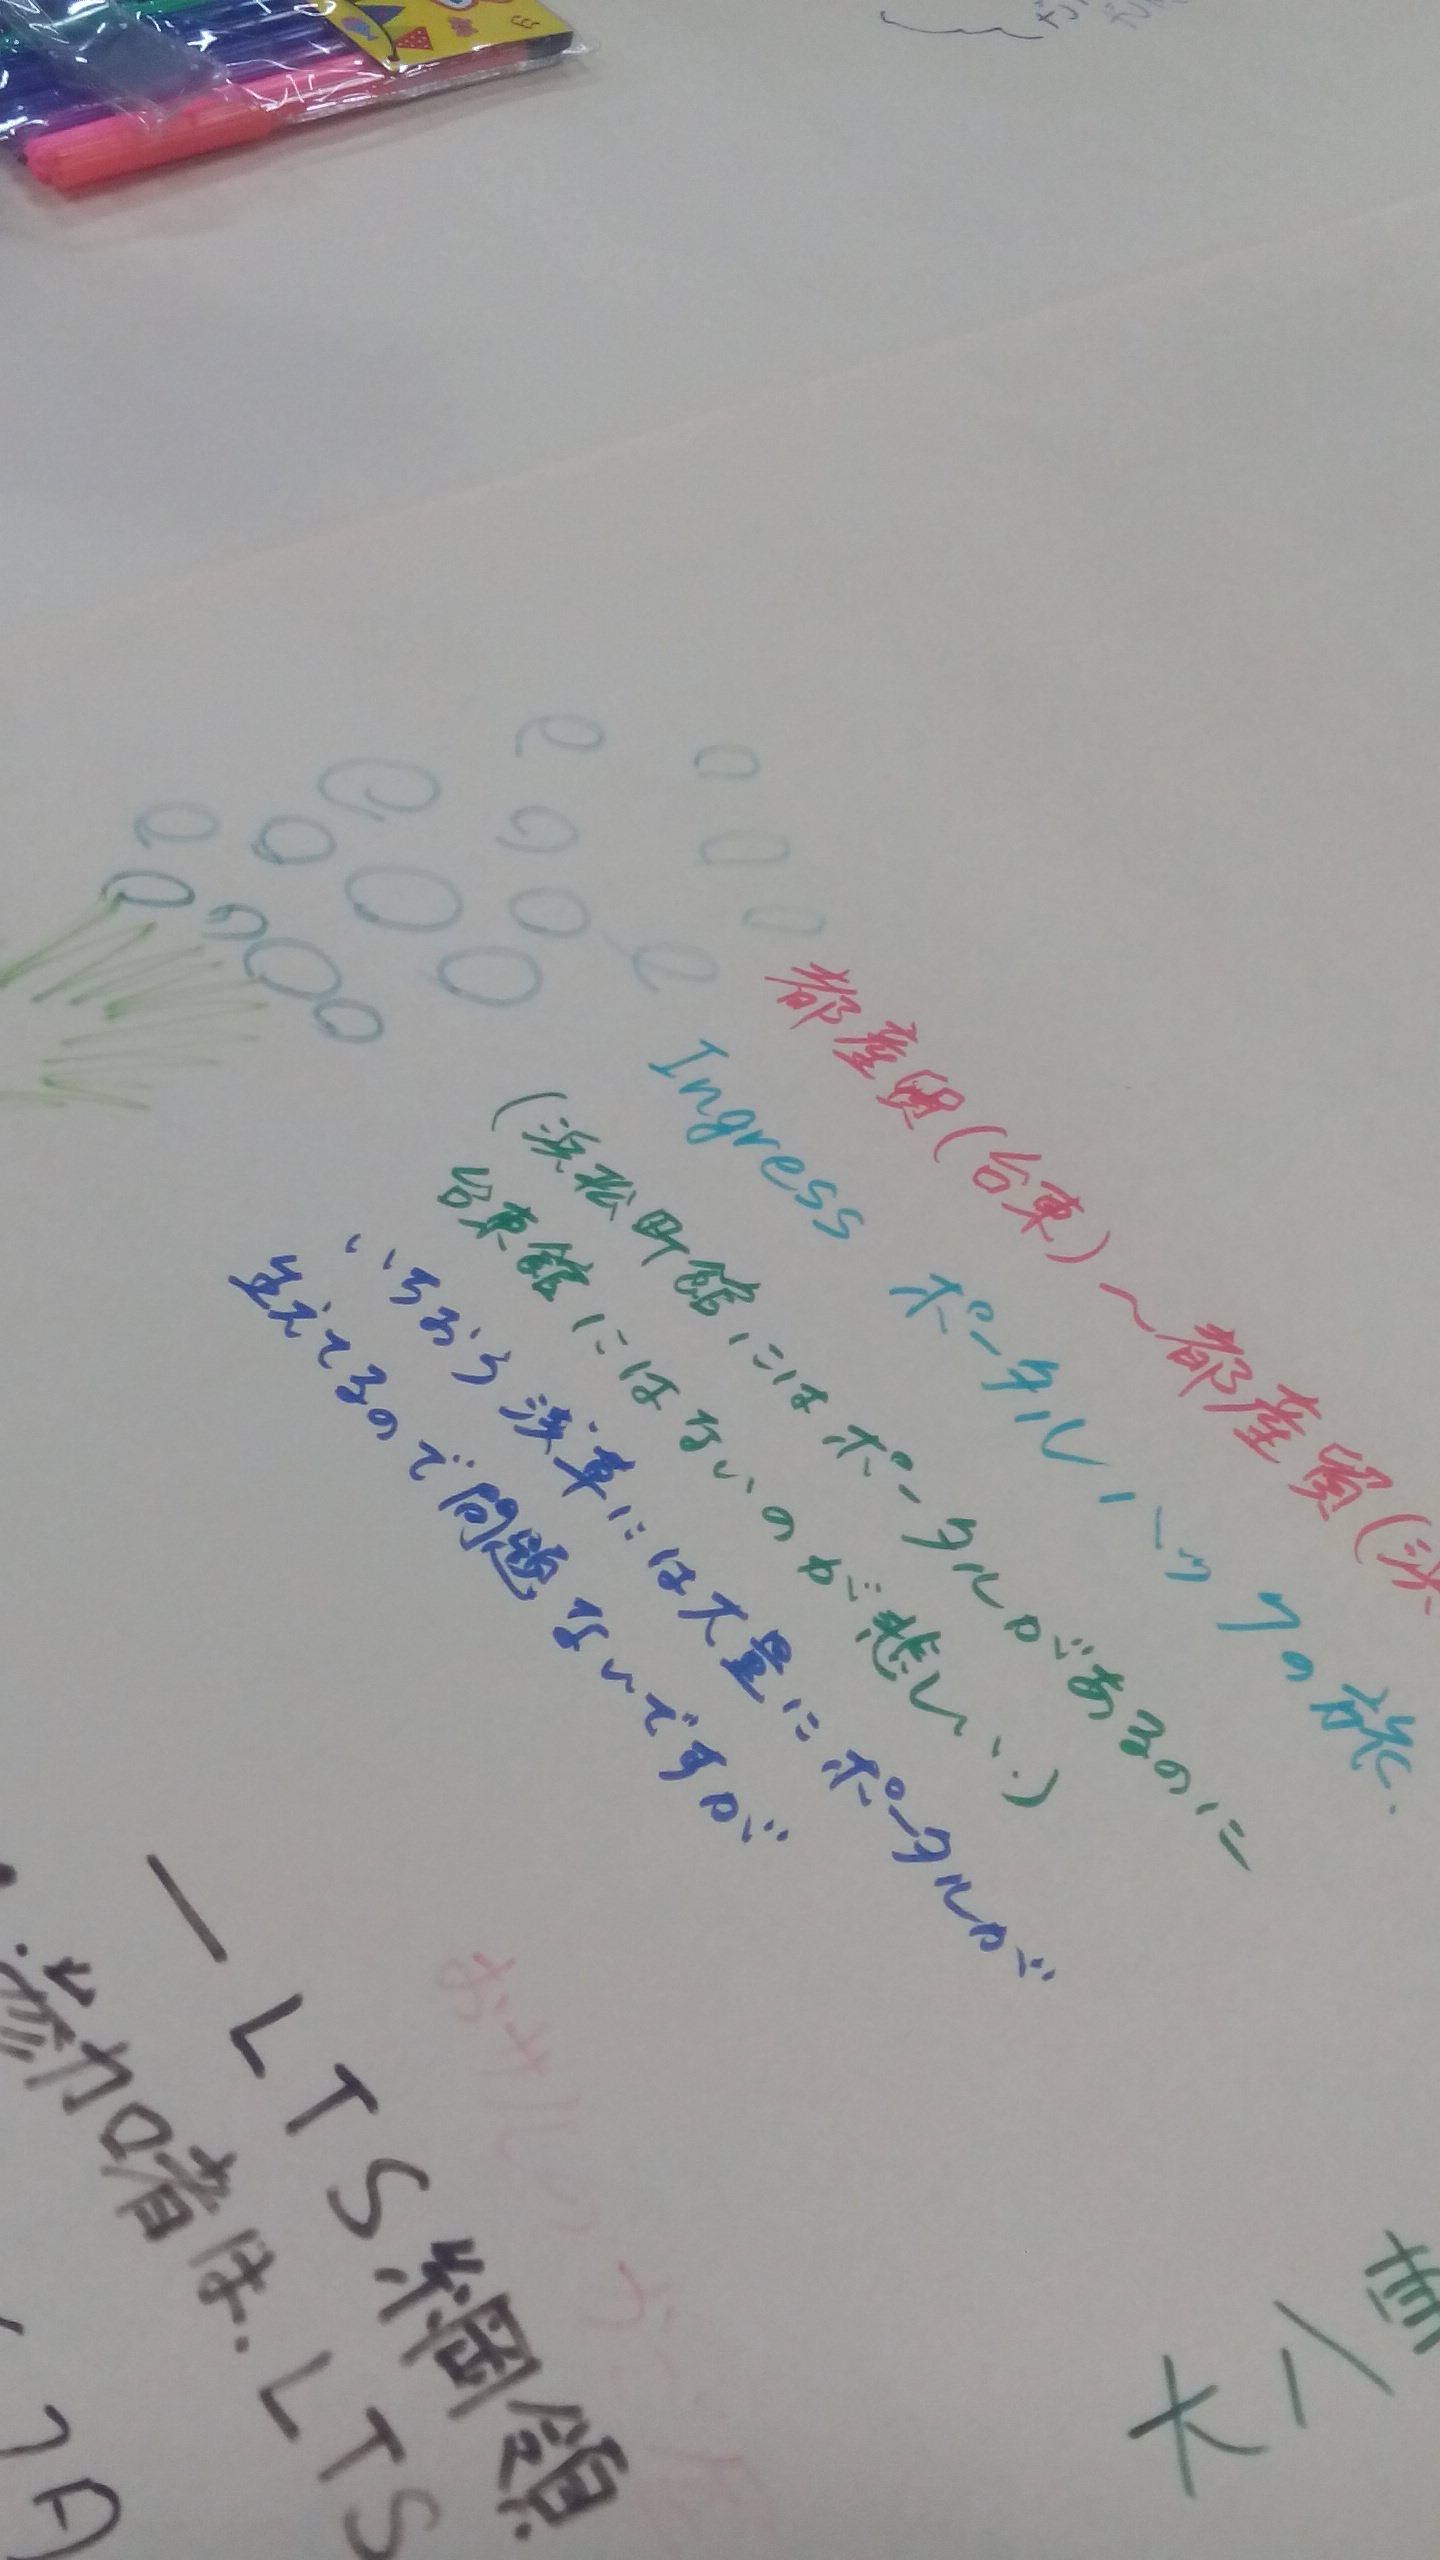 都産貿(台東)〜都産貿(浜
Ingress ポータルハックの旅.
(浜松町館にはポータルがあるのに
台東館にはないのが悲しい.)
いちおう浅草には大量にポータルが
生えてるので問題ないですが
一LTS綱領
・参加者は.LTS